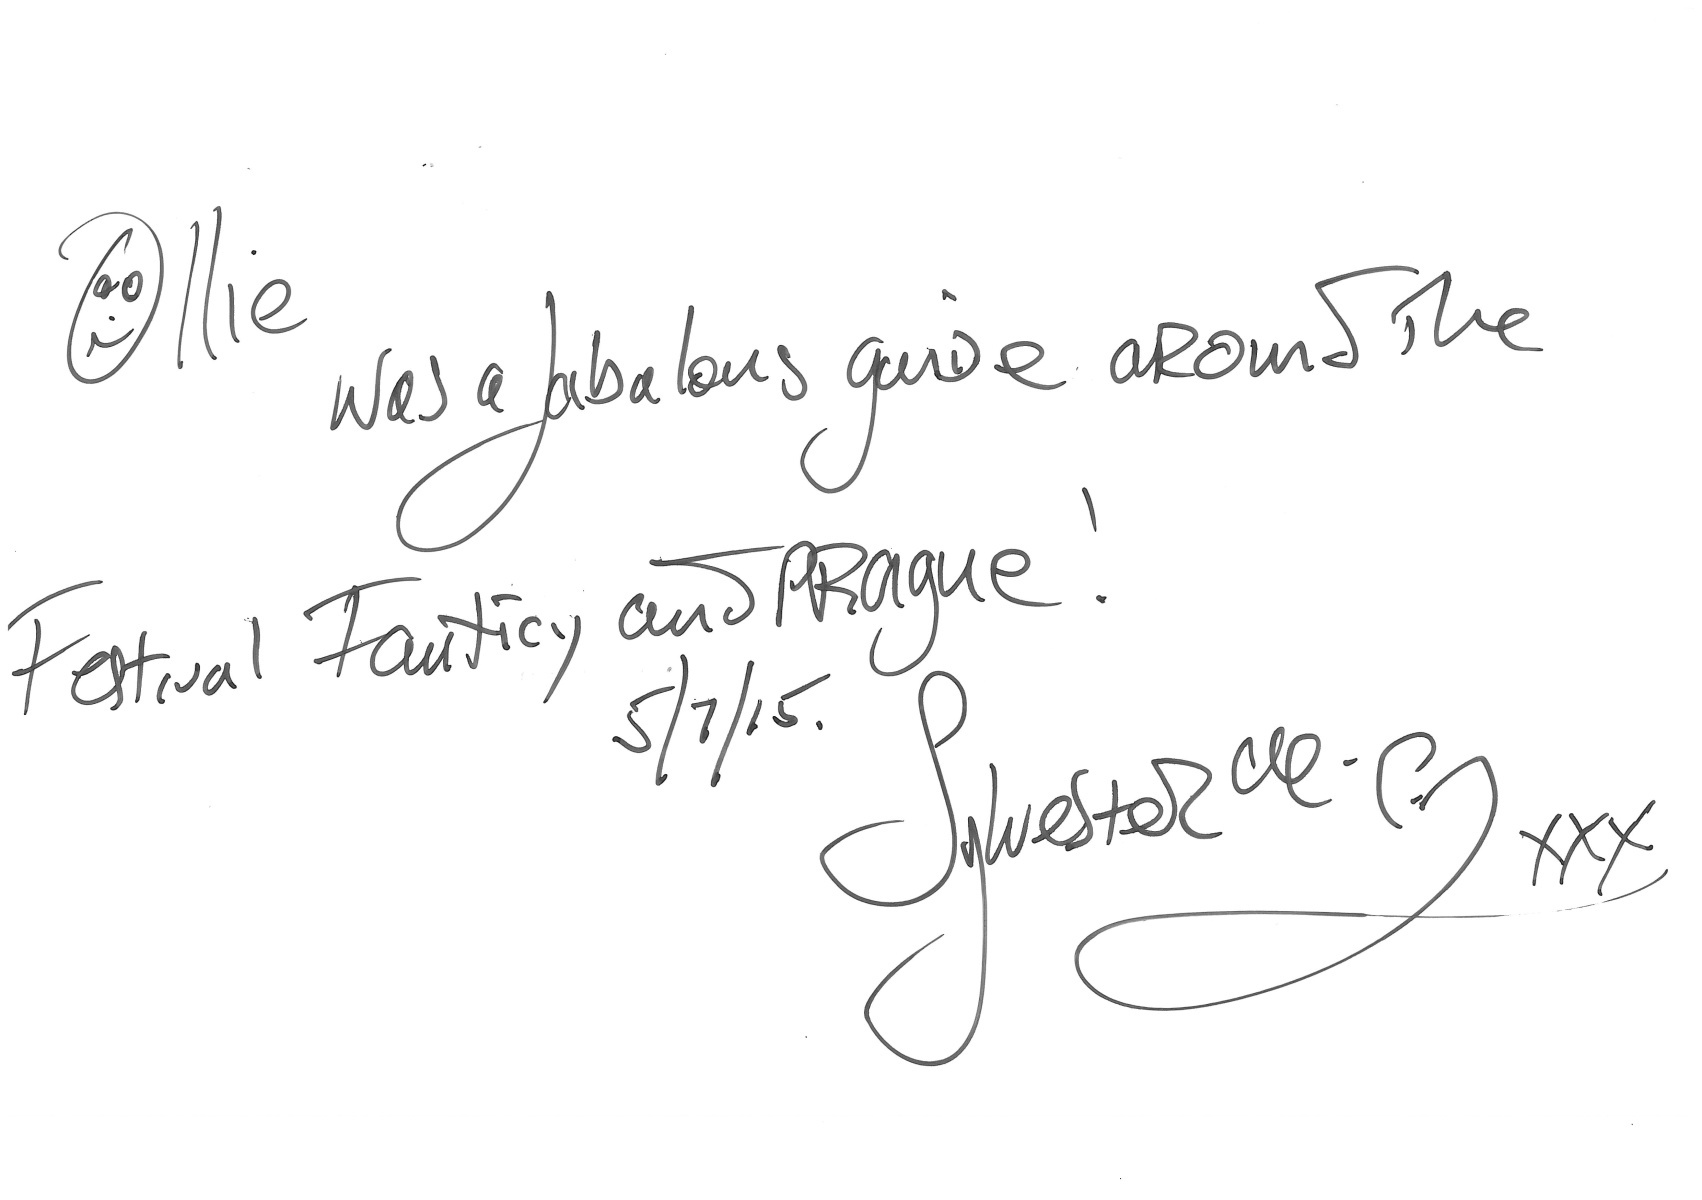 Ollie
was a fabalous guide around the
Festival Fanticy and PRague!
5/7/15.
Sylvester Mc-Coy
xxx